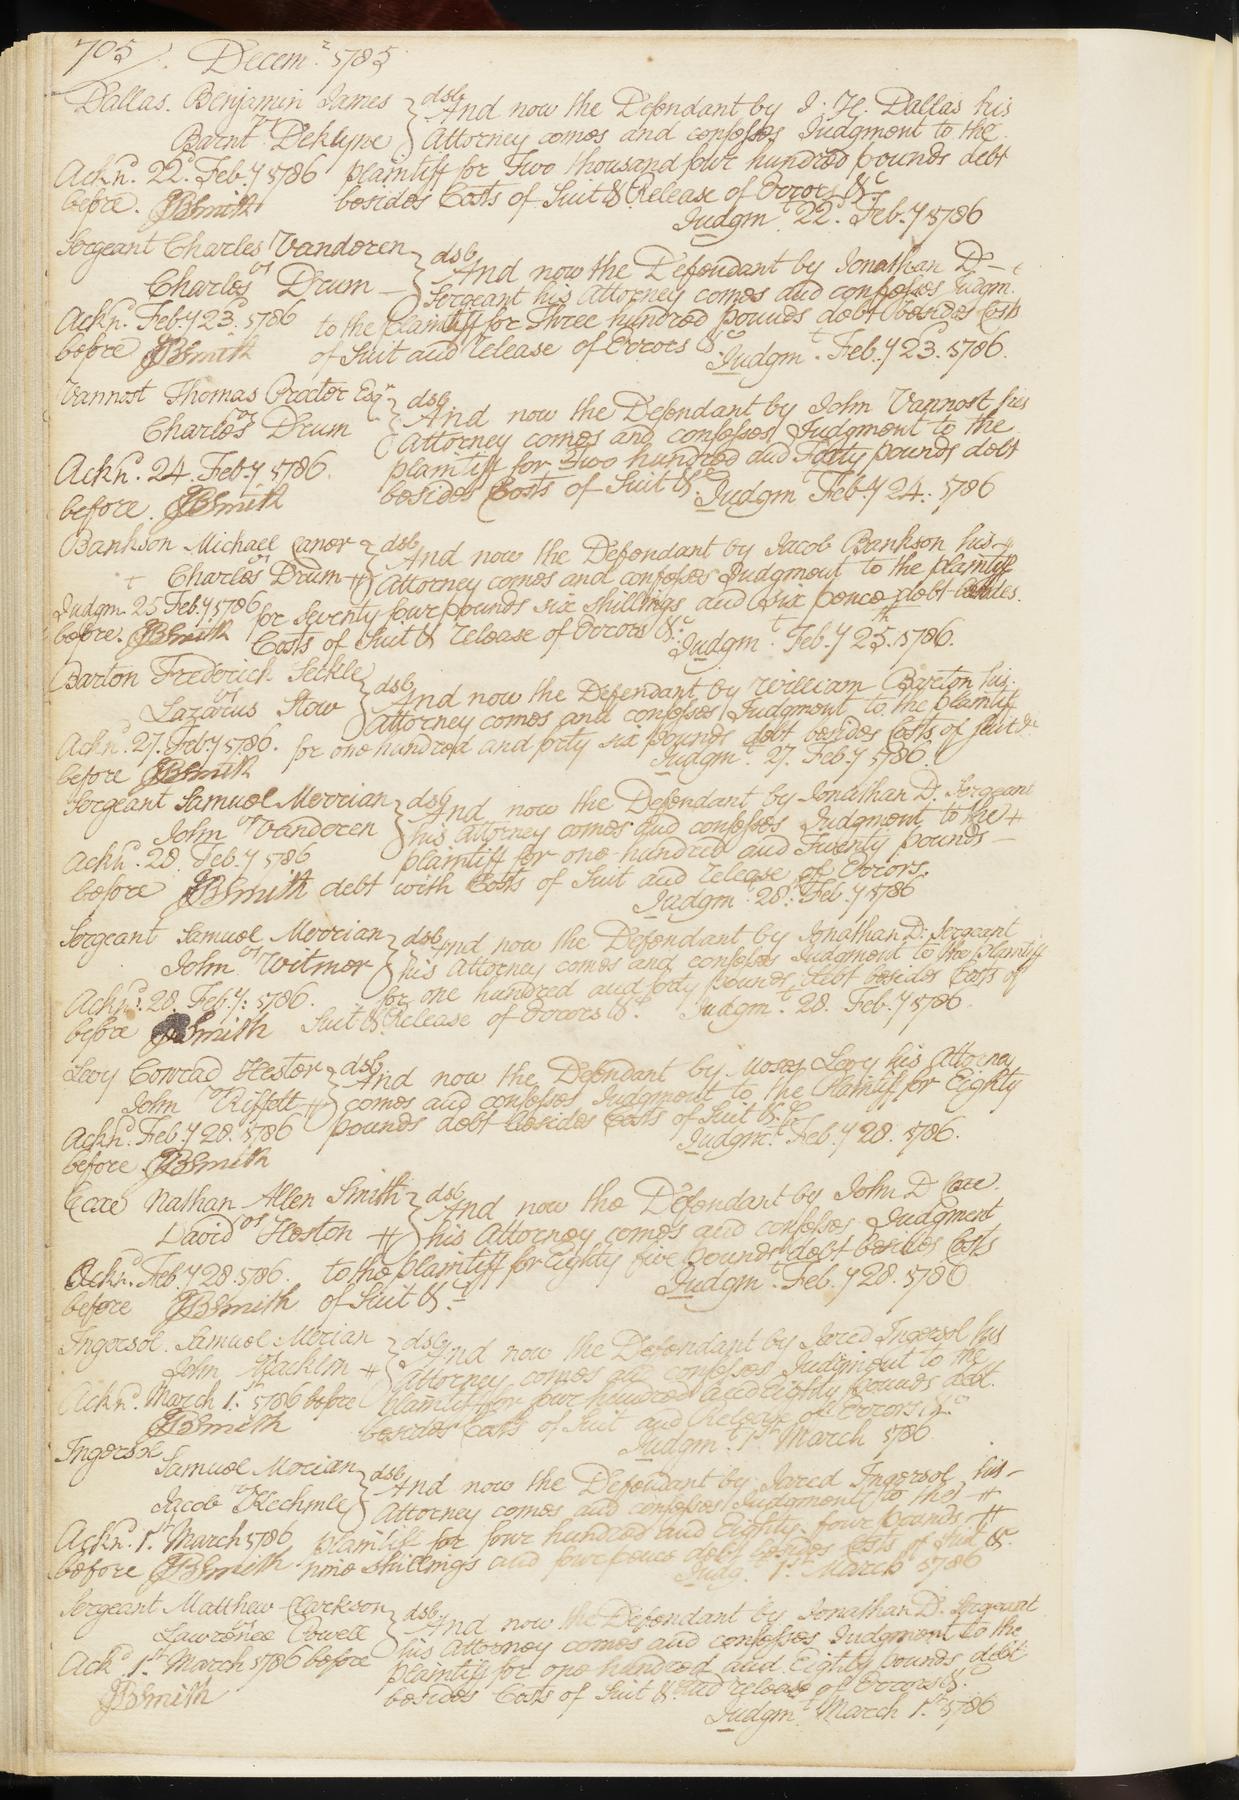 705. Decemr. 1785
Dallas. Benjamin James } dsb And now the Defendant by J. H. Dallas his
vs Barnt Dehlyne } Attorney comes and confesses Judgment to the
Acknd. 22d. Feby 1786 plaintiff for Two thousand four hundred pounds debt
before. JBSmith besides Costs of Suit & Release of Errors &c
Judgmt. 22d. Feb.y 1786
Sergeant Charles Vandoren } dsb And now the Defendant by Jonathan D.
vs Charles Drum } Sergeant his Attorney comes and confesses Judgmt.
Acknd. Feb.y 23d. 1786 to the plaintiff for Three hundred pounds debt besides Costs
before JBSmith of Suit and release of Errors &c Judgmt. Feb.y 23. 1786.
Vannost Thomas Procter Esqr } dsb And now the Defendant by John Vannost his
vs Charles Drum } Attorney comes and confesses Judgment to the
Acknd. 24. Feb.y 1786. plaintiff for Two hundred and Forty pounds debt
before. JBSmith besides Costs of Suit &c. Judgmt Feb.y 24. 1786
Bankson Michael Canor } dsb And now the Defendant by Jacob Bankson his
vs Charles Drum } Attorney comes and confesses Judgment to the plaintiff
Judgm. 25 Feb.y 1786 for seventy four pounds six shillings and six pence debt besides
before. JBSmith Costs of Suit & release of Errors &c. Judgmt. Feb.y 25th. 1786.
Barton Frederich Seckle } dsb And now the Defendant by William Barton his
vs Lazarus Stow } Attorney comes and confesses Judgment to the plaintif
Acknd. 27. Feb.y 1786. for one hundred and forty six pounds debt besides Costs of Suit &c
before JBSmith Judgmt. 27. Feb.y 1786.
Sergeant Samuel Merrian } dsb And now the Defendant by Jonathan D. Sergeant
vs John Vandoren } his Attorney comes and confesses Judgment to the
Acknd. 28. Feb.y 1786 plaintiff for one hundred and Twenty pounds
before JBSmith debt with Costs of Suit and release of Errors.
Judgm. 28th. Feb.y 1786
Sergeant Samuel Merrian } dsb And now the Defendant by Jonathan D. Sergeant
vs John Witmer } his Attorney comes and confesses Judgment to the Plaintiff
Acknd. 28. Feb.y. 1786. for one hundred and forty pounds debt besides Costs of
before JBSmith Suit & Release of Errors &c. Judgmt. 28. Feb.y 1786.
Levy Conrad Hester } dsb And now the Defendant by Moses Levy his Attorney
vs John Riffelt } comes and confesses Judgment to the Plaintif for Eighty
Acknd. Feb.y 28. 1786 pounds debt besides Costs of Suit &c.
before. JBSmith Judgmt. Feb.y 28. 1786.
Coxe Nathan Allen Smith } dsb And now the Defendant by John D Coxe.
vs David Heston } his Attorney comes and confesses Judgment
Acknd. Feb.y 28. 1786. to the plaintiff for Eighty five pounds debt besides Costs
before JBSmith of Suit &c. Judgmt. Feb.y 28. 1786
Ingersol. Samuel Merian } dsb And now the Defendant by Jared Ingersol his
John Macklin } Attorney comes and confesses Judgment to the
Acknd. March 1st. 1786 before plaintif for four hundred and Eighty pounds debt.
JBSmith besides Costs of Suit and Release of Errors &c
Judgmt. 1st March 1786
Ingersol
Samuel Merian } dsb And now the Defendant by Jared Ingersol his
vs Jacob Kechmle } Attorney comes and confesses Judgment to the
Acknd. 1st. March 1786 plaintiff for four hundred and Eighty four pounds
before JBSmith nine shillings and four pence debt besides Costs of Suit &c.
Judg. 1st. March 1786
Sergeant Matthew Clarkson } dsb And now the Defendant by Jonathan D. Sergeant
vs Lawrence Powell } his Attorney comes and confesses Judgment to the
Ackd. 1st. March 1786 before plaintiff for one hundred and Eighty pounds debt
JBSmith besides Costs of Suit & and release of Errors &c.
Judgmt. March 1st. 1786